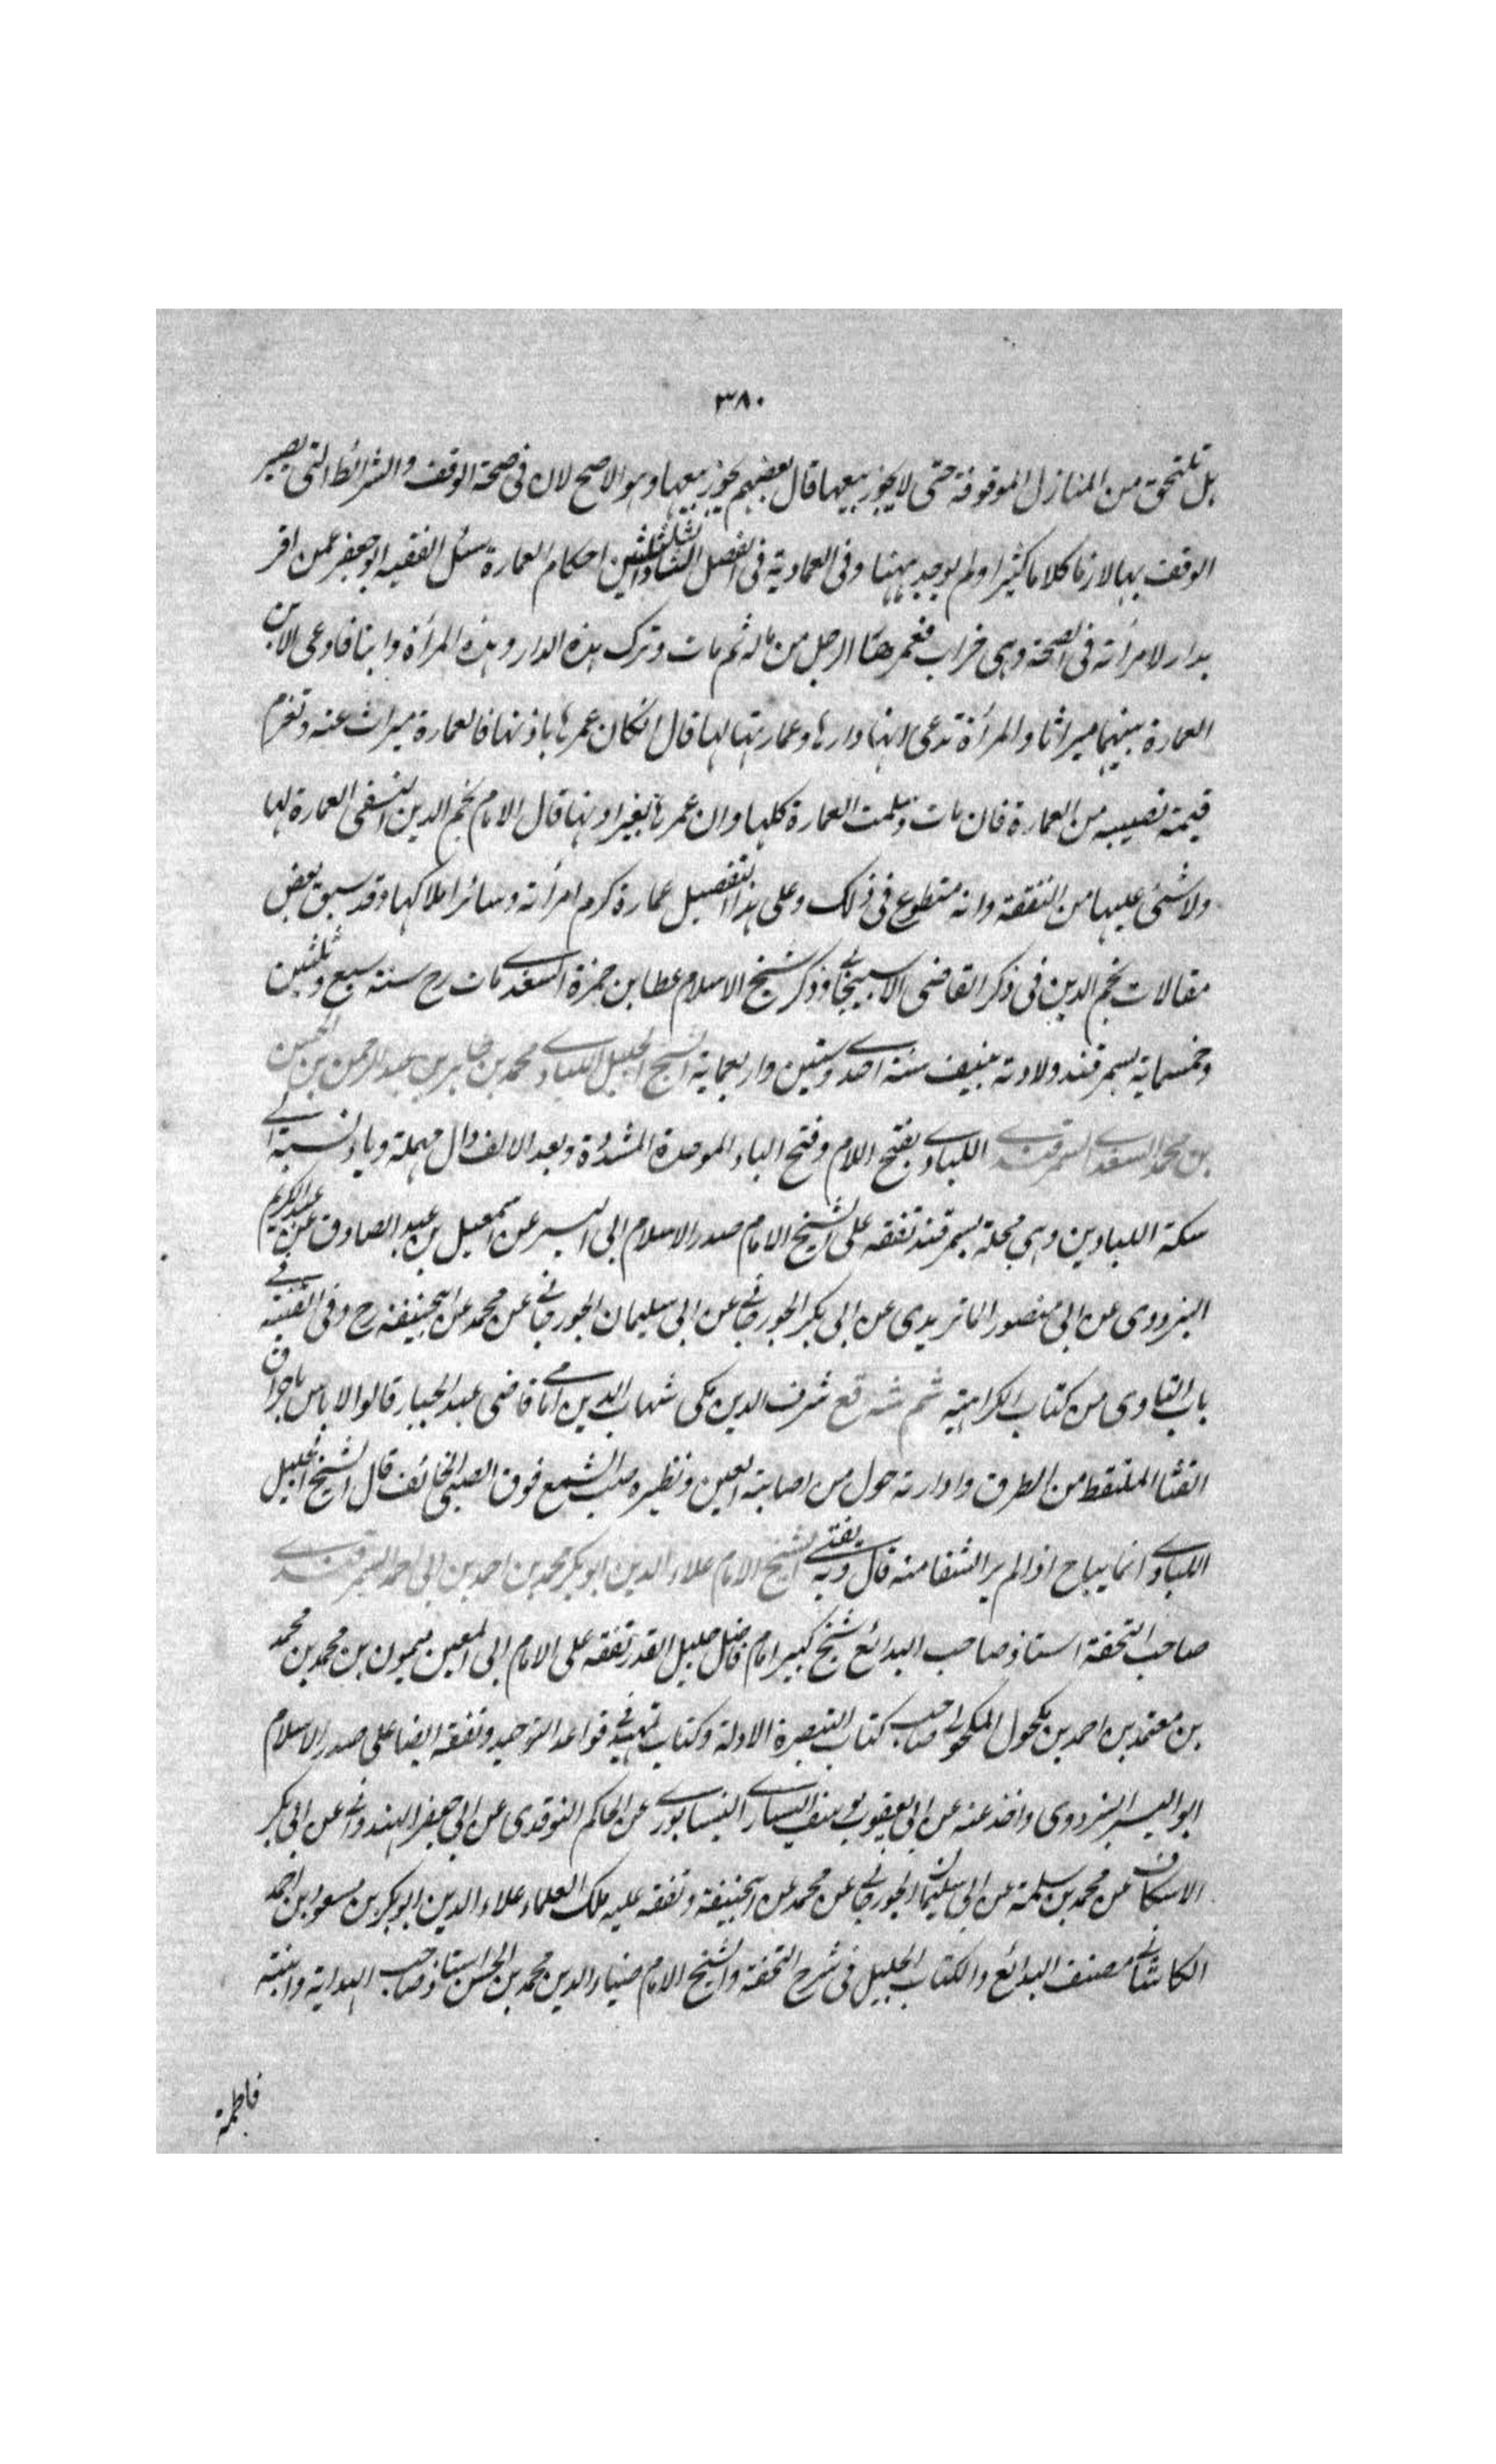 ٣٨٠
بل تلتحق من المنازل الموقوفة حتى لا يجوز بيعها قال بعضهم يجوز بيعها وهو الاصح لان فى صحة الوقف والشرائط التى يصير
الوقف بها لازما كلاما كثيرا ولم يوجد ههنا وفى العمادية فى الفصل الثلثين احكام العمارة سئل الفقيه ابو جعفر عمن اقر
بدار لامرأته فى الصحة وهى خراب فعمرها الرجل من ماله ثم مات وترك هذه الدار وهذه المرأة وابنا فادعى الابن
العمارة بينهما ميراثا والمرأة تدعى انها دارها وعمارتها لها قال انكان عمرها باذنها فالعمارة ميراث عنه وتغرم
قيمة نصيبه من العمارة فان مات وسلمت العمارة كلها وان عمرها بغير اذنها قال الامام نجم الدين النسفى العمارة لها
ولا شئ عليها من النفقة وانه متطوع فى ذلك وعلى هذا التفصيل عمارة كرم امرأته وسائر املاكها وقد سبق بعض
مقالات نجم الدين فى ذكر القاضى الاسبيجابي وذكر شيخ الاسلام عطا بن حمزة السغدي مات رح سنة سبع وثلثين
وخمسماية بسمرقند ولادته بنيف سنة احدي وستين واربعماية الشيخ الجليل اللبادي محمد بن طاهر بن عبد الرحمن بن الحسن
بن محمد السغدي السمرقندي اللبادي بفتح اللام وفتح الباء الموحدة المشددة وبعد الالف دال مهملة وياء نسبة الي
سكة اللبادين وهي محلة بسمرقند تفقه على الشيخ الامام صدر الاسلام ابى اليسر عن اسمعيل بن عبد الصادق عن عبد الكريم
البزدوى عن ابى منصور الماتريدى عن ابى بكر الجوزجاني عن ابى سليمان الجوزجاني عن محمد عن ابيحنيفة رح وفى القنية في
باب التداوى من كتاب الكراهية ثم شرقع شرف الدين مكى شهاب الدين امامي قاضى عبد الجبار قالوا لا باس باحراق
القثا الملتقط من الطرق وادارته حول من اصابته العين ونظيره صب الشمع فوق الصبى الخائف قال الشيخ الجليل
اللبادي انما يباح اذا لم ير الشفا منه قال وبه يفتى الشيخ الامام علاء الدين ابو بكر محمد بن احمد بن ابى احمد السمرقندي
صاحب التحفة استاذ صاحب البدائع شيخ كبير امام فاضل جليل القدر تفقه على الامام ابى المعين ميمون بن محمد بن محمد
بن معتمد بن احمد بن مكحول المكحولي صاحب كتاب التبصرة الادلة وكتاب تمهيد في قواعد التوحيد وتفقه ايضا على صدر الاسلام
ابو اليسر البزدوى واخذ عنه عن ابى يعقوب يوسف السياري النيسابوري عن الحاكم النوقدى عن ابى جعفر الهندواني عن ابى بكر
الاسكاف عن محمد بن سلمة عن ابى سليمان الجوزجاني عن محمد عن ابيحنيفة وتفقه عليه ملك العلماء علاء الدين ابو بكر بن مسعود بن احمد
الكاشاني مصنف البدائع والكتاب الجليل فى شرح التحفة والشيخ الامام ضياء الدين محمد بن الحسن استاذ صاحب الهداية وابنته
فاطمة